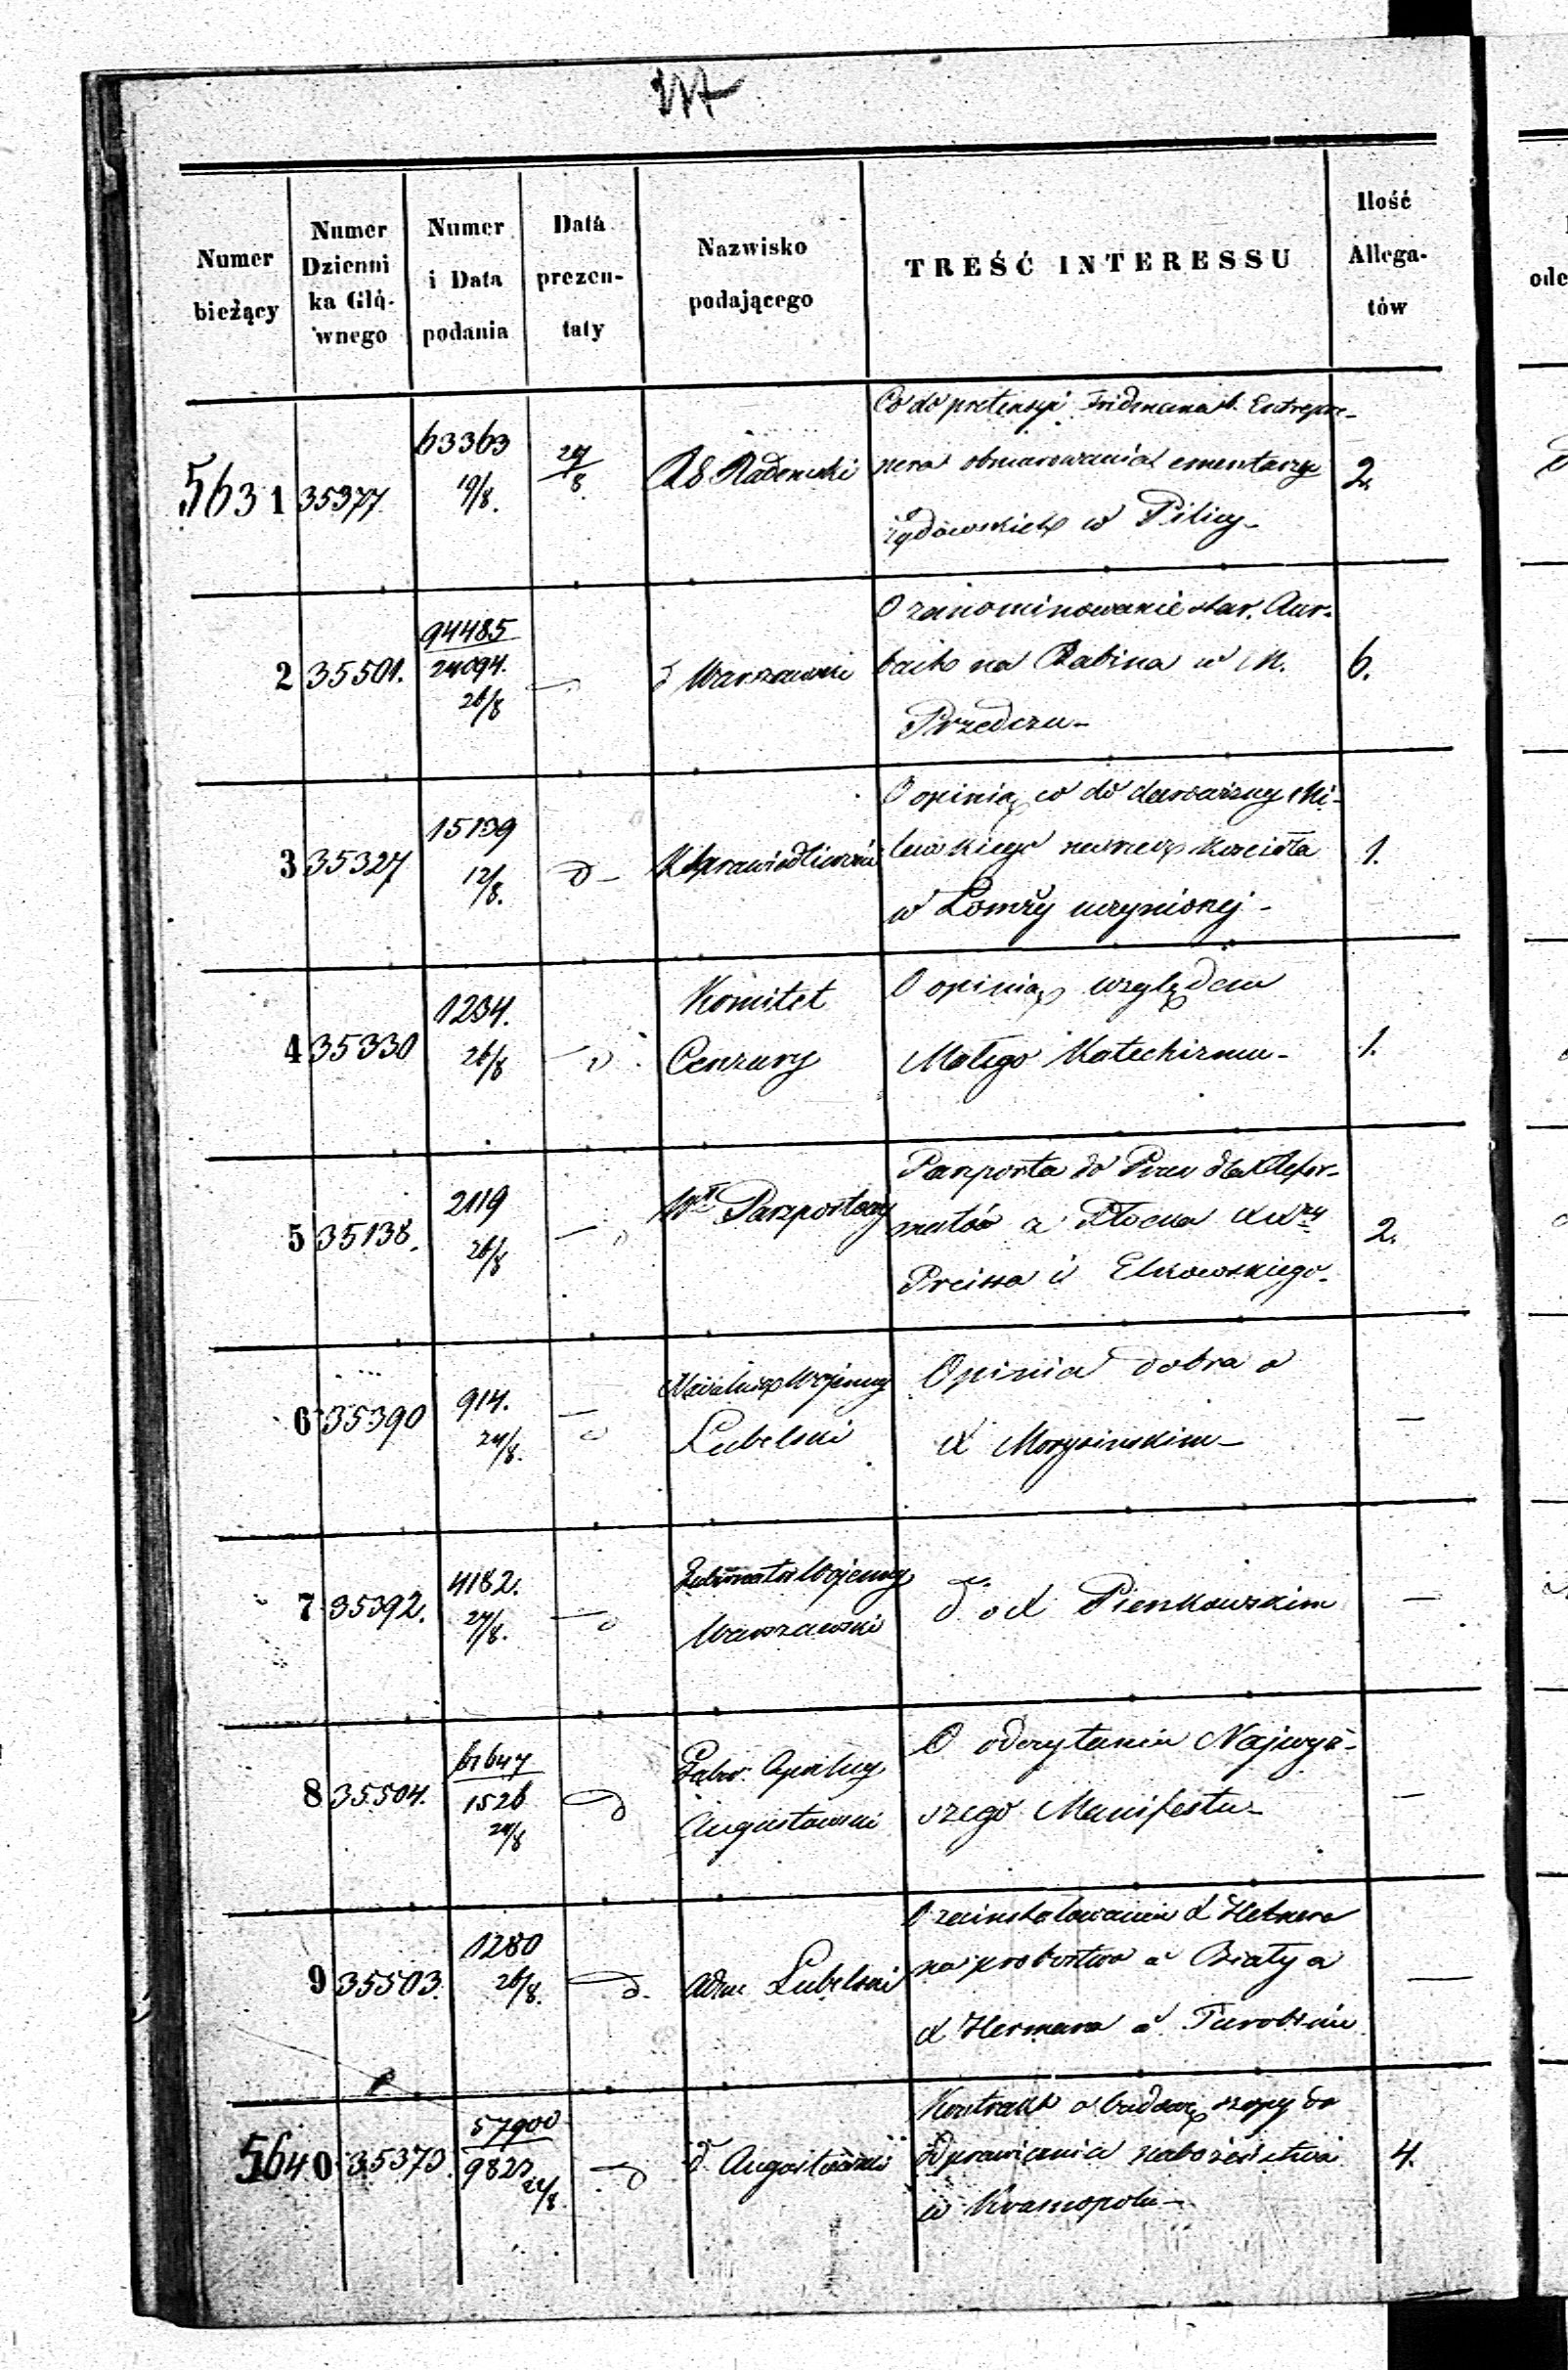 Numer
bieżący
Numer
Dzienni
ka Głó-
wnego
Numer
i Data
podania
Data
prezen-
taty
Nazwisko
podającego
TREŚĆ INTERESSU
Ilość
Allega-
tów
5631
35377
63363
19/8.
27/8.
RG Radomski
Co do pretensyi Fridmana b. Entrepre-
nera obmurowania cmentarzy
żydowskich w Pilicy-
2.
2
35501.
94485
24094.
26/8
d Warszawski
O zanominowanie star. Aur-
bach na Rabina w M.
Przedczu-
6.
3
35327
15139
12/8.
d-
K Sprawiedliwości
O opinią co do darowizny Mi-
lewskiego na rzecz Kościoła
w Łomży uczynionej-
1.
4
35330
1234.
26/8
Komitet
Cenzury
O opinią względem
Małego Katechizmu-
1.
5
35138.
2119
26/8
Paszportowy
Paszporta do Prus dla Refor-
matów z Płocka
Preissa i
2.
6
35390
914.
24/8.
Naczelnik Wojenny
Lubelski
Opinia dobra o
X Morysińskim-
—
7
35392.
4182.
27/8.
Gubernator Wojenny
Warszawski
d. o X Pienkowskim
—
8
35504.
61647
1526
24/8
d
Gaber. Cywilny
Augustowski
O odczytaniu Najwyż-
szego Manifestu-
—
9
35503.
1280
26/8.
d.
Adm Lubelski
O zainstalowaniu X Hetnera
na probostwo w Biały a
X Hermana w Turobinie
—
5640
35373.
57900
9823
24/8.
d
d Augustowski
Kontrakt o budowę szopy do
odprawiania nabożeństwa
w Krasnopolu-
4.